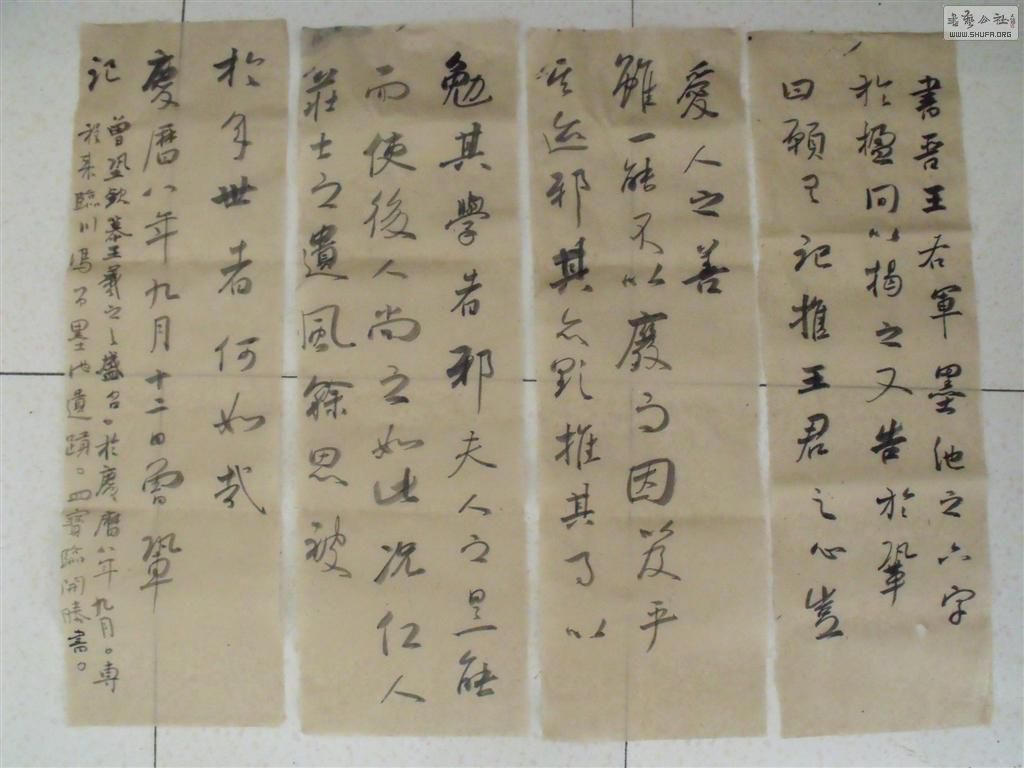 書吾王右軍墨池之六字
於楹间以揭之又告於鞏
曰願又記推王君之心豈
愛人之善
雖一能不以廢而因以及乎
其迹邪其亦欲推其事以
勉其學者邪夫人之是能
而使後人尚之如此况仁人
莊士之遺風餘思被
於年世者何如哉
慶曆八年九月十二日曾鞏
記
曾鞏欽慕王羲之之盛名。於慶曆八年九月。專
於来臨川馮吊墨池遺蹟。四寶臨開勝書。
書艺公社
WWW.SHUFA.ORG